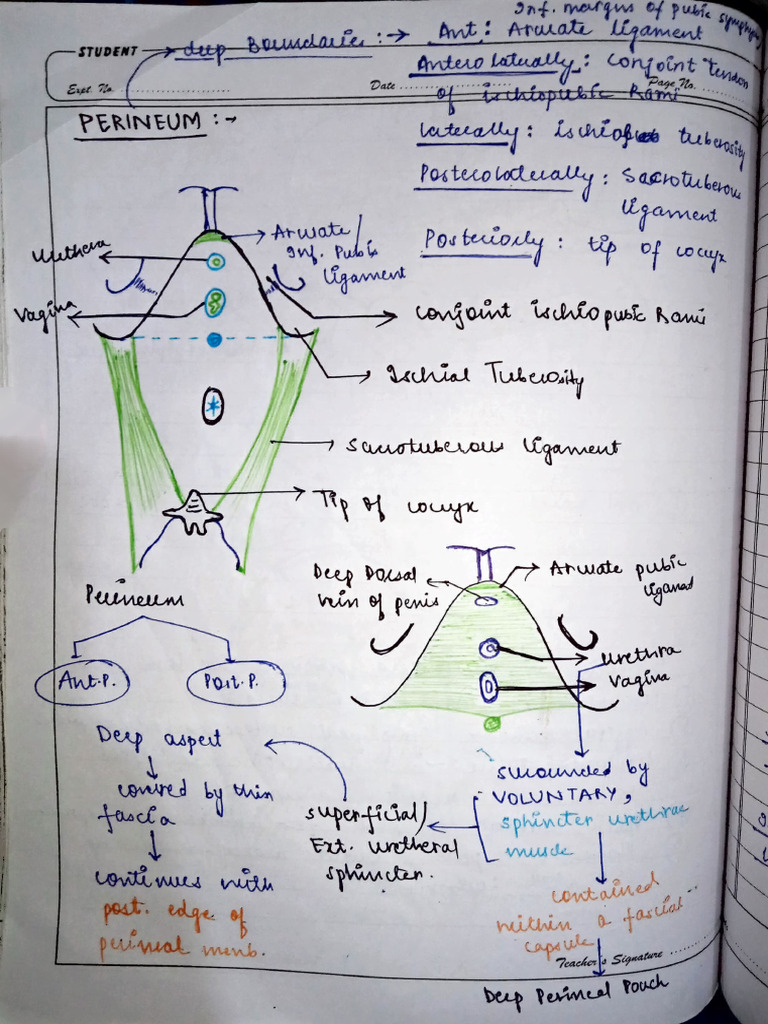 Inf. margins of pubic symphysis
STUDENT
deep Boundaries :→ Ant : Arcuate ligament
Anterolaterally : Conjoint tendon
of ischiopubic Rami
Expt. No.
Date
Page No.
PERINEUM :→
laterally : ischial tuberosity
Posterolaterally : Sacrotuberous
ligament
Posteriorly : tip of coccyx
Arcuate/
Inf. Pubic
ligament
Urethera
Vagina
Conjoint ischiopubic Rami
Ischial Tuberosity
Sacrotuberous ligament
Tip of coccyx
Perineum
Ant. P.
Post. P.
Deep Dorsal
vein of penis
Arcuate pubic
Urethra
Vagina
Deep aspect
↓
covered by thin
fascia
↓
continues with
post. edge of
perineal memb.
superficial/
Ext. uretheral
sphincter.
surounded by
VOLUNTARY,
sphincter urethrae
muscle
contained
within a fascial
capsule
Teacher's Signature
Deep Perineal Pouch